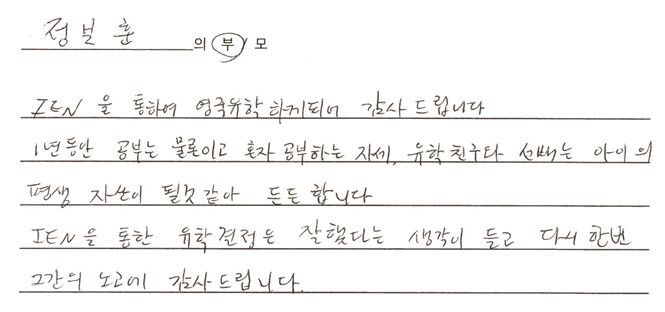 정보훈 의 부 모
IEN 을 통하여 영국유학 하게되어 감사 드립니다
1년동안 공부는 물론이고 혼자 공부하는 자세, 유학친구와 선배는 아이의
평생 자산이 될것 같아 든든 합니다
IEN을 통한 유학결정은 잘했다는 생각이 들고 다시 한번
그간의 노고에 감사드립니다.